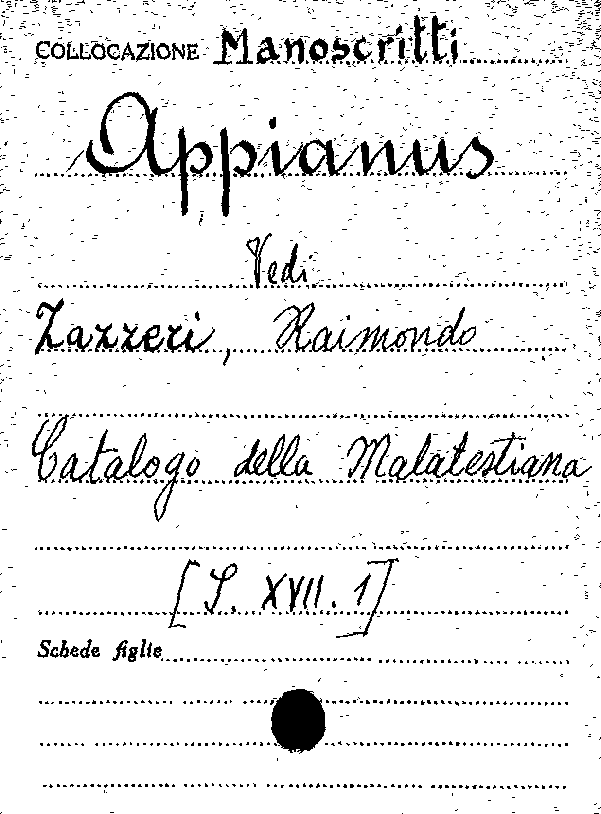 COLLOCAZIONE Manoscritti
Appianus
Vedi
Zazzeri, Raimondo
Catalogo della Malatestiana
[S. XVII. 1]
Schede figlie